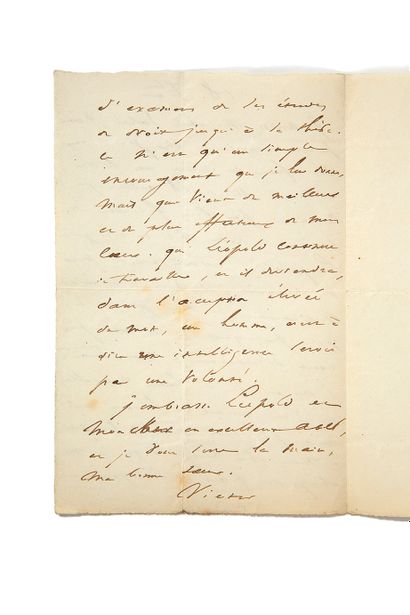 d'examens de les études
de droit jusqu'à la thèse.
Ce n'est qu'un simple
encouragement que je lui donne,
mais qui vient du meilleur
et du plus de mon
cœur. que Léopold continue
à travailler, et il deviendra,
dans l'acception élevée
du mot, un homme, c'est à
dire une intelligence servie
par une volonté.
j'embrasse Léopold et
mon cher et excellent Abel,
et je vous serre la main,
ma bonne sœur.
Victor